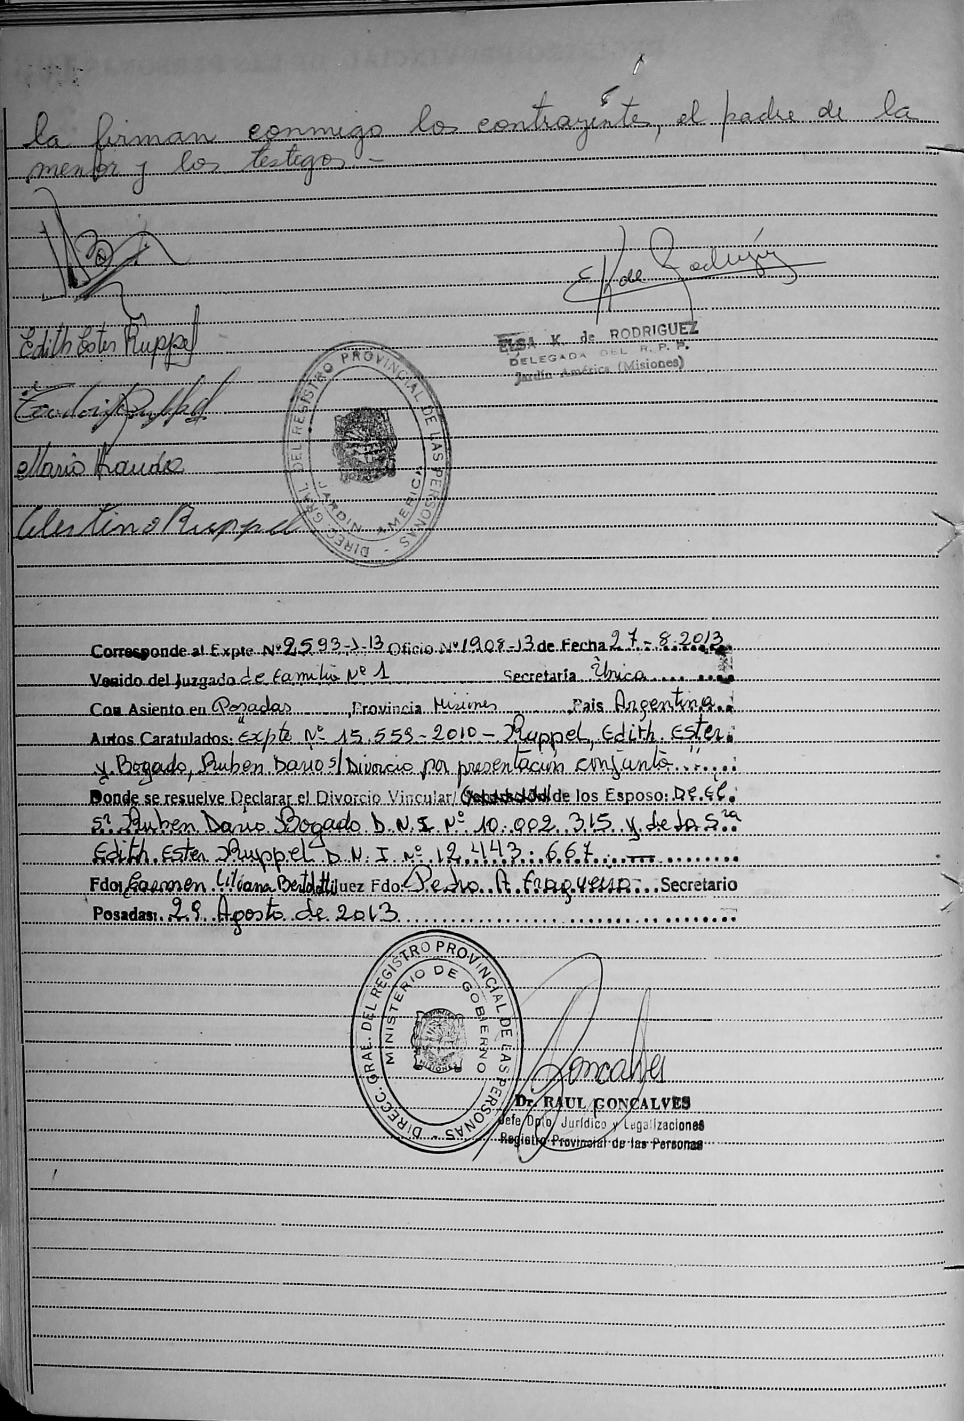 la firman conmigo los contrayentes, el padre de la
menor y los testigos.-
Edith Ester Ruppel
E K de Rodriguez
ELSA K. de RODRIGUEZ
DELEGADA DEL R. P. P.
Jardín América (Misiones)
Ruppel
DIRECC. GRAL. DEL REGISTRO PROVINCIAL DE LAS PERSONAS -
JARDIN AMERICA
Mario
Celestino Ruppel
Corresponde al Expte Nº 2593-J-13 Oficio Nº 1908-13 de Fecha 27-8-2013
Venido del Juzgado de Familia Nº 1 Secretaria Única
Con Asiento en Posadas, Provincia Misiones, Pais Argentina
Autos Caratulados: Expte Nº 15.559-2010 - Ruppel, Edith Ester
y Bogado, Ruben Dario s/ Divorcio por presentación conjunta "
Donde se resuelve Declarar el Divorcio Vincular/ de los Esposo: De el
Sr Ruben Dario Bogado D.N.I. Nº 10.002.315 y de la Sra
Edith Ester Ruppel D.N.I. Nº 12.443.667
Fdo: Carmen Liliana Bertolotti Juez Fdo: Pedro A. Secretario
Posadas: 29 Agosto de 2013
DIRECC. GRAL. DEL REGISTRO PROVINCIAL DE LAS PERSONAS -
MINISTERIO DE GOBIERNO
MISIONES
Goncalves
Dr. RAUL GONCALVES
Jefe Dpto Jurídico y Legalizaciones
Registro Provincial de las Personas